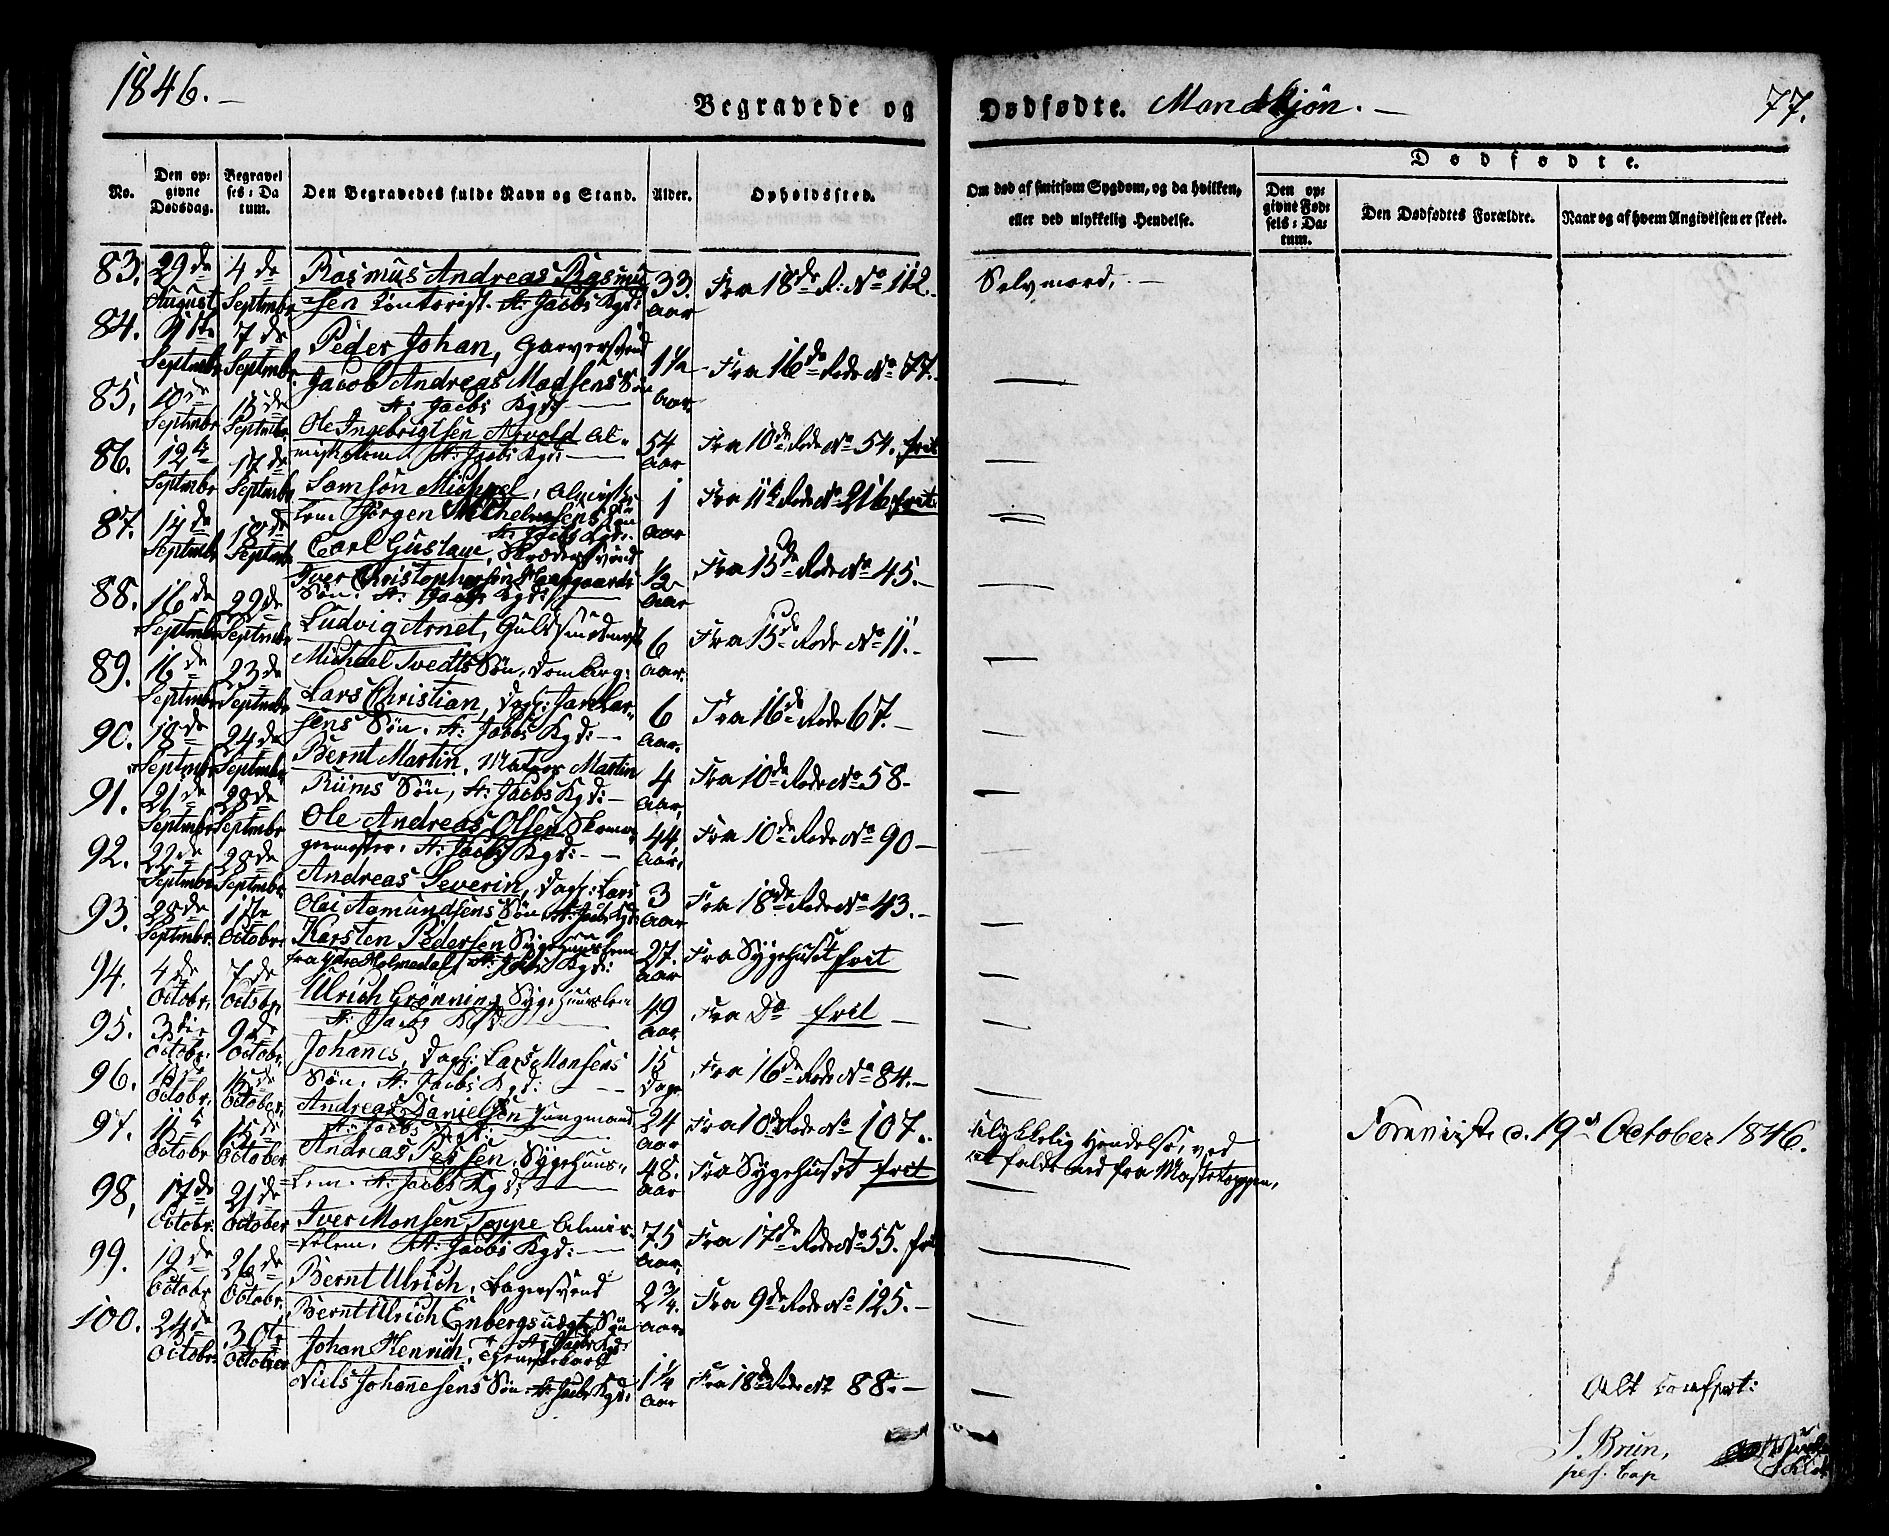 1846.
Begravede og Dødfødte. Mandkjön.
77.
No.
Den opgivne Dødsdag.
Begravelses-Datum.
Den Begravedes fulde Navn og Stand.
Alder.
Opholdssted.
Om død af smitsom Sygdom, og da hvilken, eller ved ulykkelig Hendelse.
Dødfødte.
Den opgivne Fødsels-Datum.
Den Dødfødtes Forældre.
Naar og af hvem Angivelsen er skeet.
83. 29de August 4de Septembr Rasmus Andreas Rasmus=
sen Contorist. St: Jacobs Kgd: 33 Aar Fra 18de R: No 112. Selvmord.
84. Septembr 7de Septembr Peder Johan, Garversvend
Jacob Andreas Madsens Søn
St: Jacobs Kgd: 1½ Aar. Fra 16de Rode No 77.
85. 10de Septembr 15de Septembr Ole Ingebrigtsen Arvold Al=
St: Jacobs Kgd: 54 Aar Fra 10de Rode No 54. frit
86. 12te Septembr 17de Septembr Samson Michael,
lem Jörgen Søn
St: Jacobs Kgd: 1 Aar Fra 11te Rode No 216 frit.
87. 14de Septembr 18de Septembr Carl Gustave, Skrædersvend
Iver Christophersen
Søn. St: Jacobs Kgd: ½ Aar Fra 15de Rode No 45.
88. 16de Septembr 22de Septembr Ludvig Arnet, Guldsmedmester
Michael Tvedts Søn, Domkirg: 6 Aar. Fra 15de Rode No 11.
89. 16de Septembr 23de Septembr Lars Christian, Dagk: Jan Lar=
sens Søn. St: Jacobs Kgd: 6 Aar. Fra 16de Rode 67.
90. 18de Septembr 24de Septembr Bernt Martin, Matros Martin
Rüms Søn, St: Jacobs Kgd: 4 Aar, Fra 10de Rode No 58
91. 21de Septembr 28de Septembr Ole Andreas Olsen Skoma=
germester. St: Jacobs Kgd: 44 Aar. Fra 10de Rode No 90
92. 22de Septembr 28de Septembr Andreas Severin, Dagk: Lars
Olai Aamundsens Søn St: Jacobs Kgd: 3 Aar Fra 18de Rode No 43.
93. 28de Septembr. 1ste Octobr Karsten Pedersen Sygehuuslem
fra Ydre Holmedal, St: Jacobs Kgd: 27. Aar Fra Sygehuset frit
94. 4de Octobr. 7de Octobr. Ulrich Grønning Sygehuuslem
St: Jacobs Kgd: 49 Aar Fra Do frit
95. 3die Octobr. 9de Octobr. Johannes, Dagk: Lars Monsens
Søn. St: Jacobs Kgd: 15 Dage Fra 16de Rode No 84.
96. Octobr. 15de October. Andreas Danielsen Jungmand
St: Jacobs Kgd: 24 Aar Fra 10de Rode No 107. Ulykkelig Hendelse, ved
at falde ned fra Mastetoppen.
Foreviist d. 19d October 1846.
97. 11te Octobr 15de October Andreas Sygehuus=
lem. St: Jacobs Kgd: 48. Aar Fra Sygehuset frit
98. 17de Octobr. 21de October Iver Monsen Toppe Almis=
selem. St: Jacobs Kgd: 75 Aar. Fra 17de Rode No 55. frit
99. 19de Octobr 26de Octobr. Bernt Ulrich, Bagersvend
Bernt Ulrich Enbergs uægte Søn
St: Jacobs Kgd: 2¾ Aar Fra 9de Rode No 125.
100. 24de Octobr. 30te October Johan Henrich, Tjenestekarl
Niels Johannesens Søn. St: Jacobs Kgd: 1¼ Aar Fra 18de Rode No 88.
Alt
J. Brun,
res. Cap